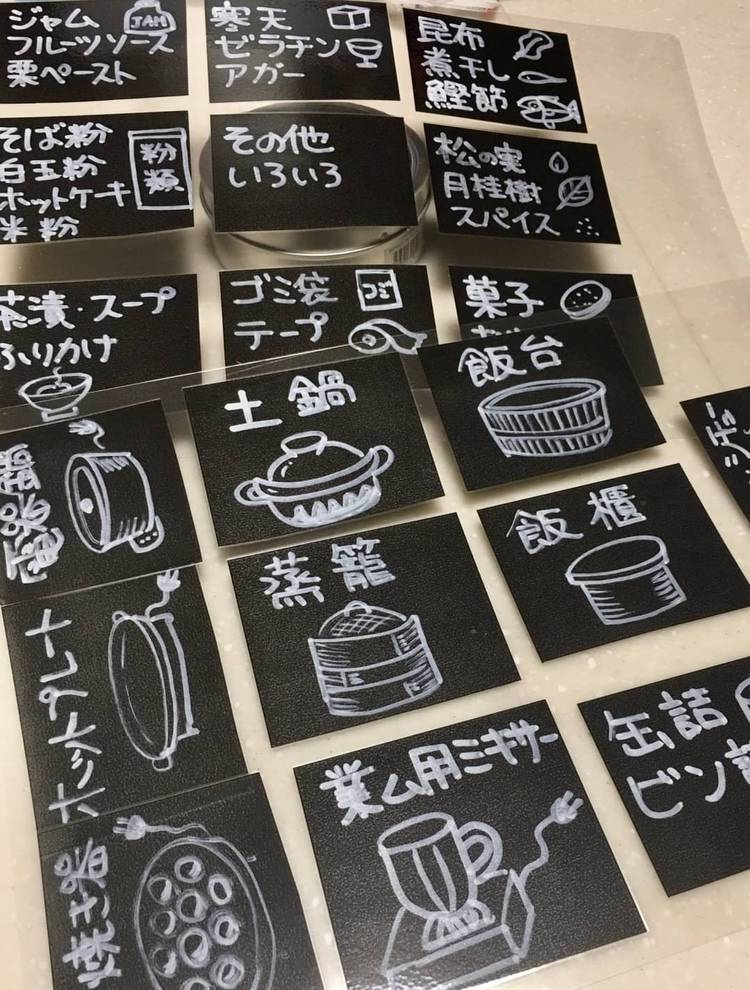 ジャム
フルーツソース
栗ペースト
JAM
寒天
ゼラチン
アガー
昆布
煮干し
鰹節
そば粉
白玉粉
ホットケーキ
米粉
粉類
その他
いろいろ
松の実
月桂樹
スパイス
茶漬・スープ
ふりかけ
ゴミ袋
テープ
ゴミ
菓子
土鍋
飯台
蒸籠
飯櫃
ホットプレート
業ム用ミキサー
缶詰
ビン詰
焼き器